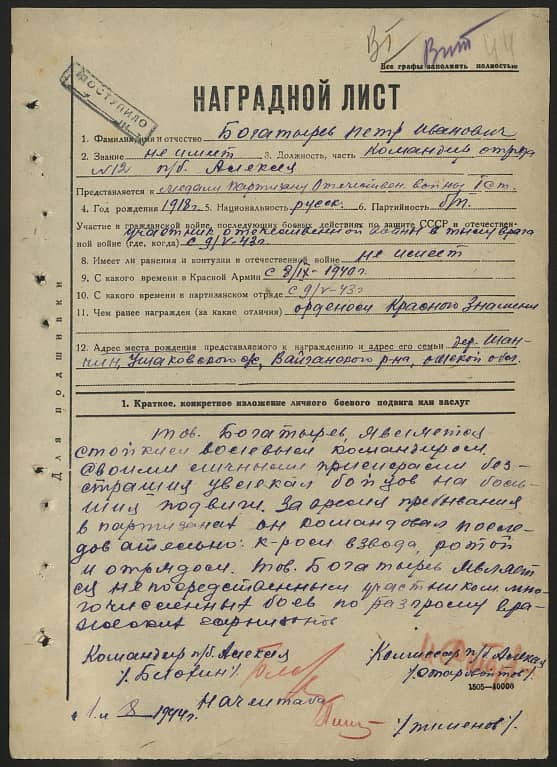 ВТ
44
Все графы заполнять полностью
ПОСТУПИЛО
НАГРАДНОЙ ЛИСТ
1. Фамилия, имя и отчество Богатырев Петр Иванович
2. Звание не имеет 3. Должность, часть командир отряда
№12 п/б. Алексея
Представляется к медали Партизану Отечествен. войны I ст.
4. Год рождения 1918 г. 5. Национальность русск. 6. Партийность б/п.
Участие в гражданской войне, последующих боевых действиях по защите СССР и отечествен-
ной войне (где, когда) участник отечественной войны в тылу врага
с 9/V-43 г.
8. Имеет ли ранения и контузии в отечественной войне не имеет
9. С какого времени в Красной Армии с 8/IX-1940 г.
10. С какого времени в партизанском отряде с 9/V-43 г.
11. Чем ранее награжден (за какие отличия) орденом Красного Знамени
12. Адрес места рождения представляемого к награждению и адрес его семьи дер. Шан-
Ушаковского с/с, р-на, обл.
Для подшивки
1. Краткое, конкретное изложение личного боевого подвига или заслуг
Тов. Богатырев является
стойким волевым командиром.
Своими личными примерами без-
страшия увлекал бойцов на боль-
шия подвиги. За время пребывания
в партизанах он командовал после-
довательно: к-ром взвода, ротой
и отрядом. Тов. Богатырев являет-
ся непосредственным участником мно-
гочисленных боев по разгрому вра-
жеских гарнизонов
Командир п/б. Алексея
Комиссар п/б Алексея
/Блохин/.
/Старовойтов/.
1505—10000
"1" 8 1944 г.
Начштаба